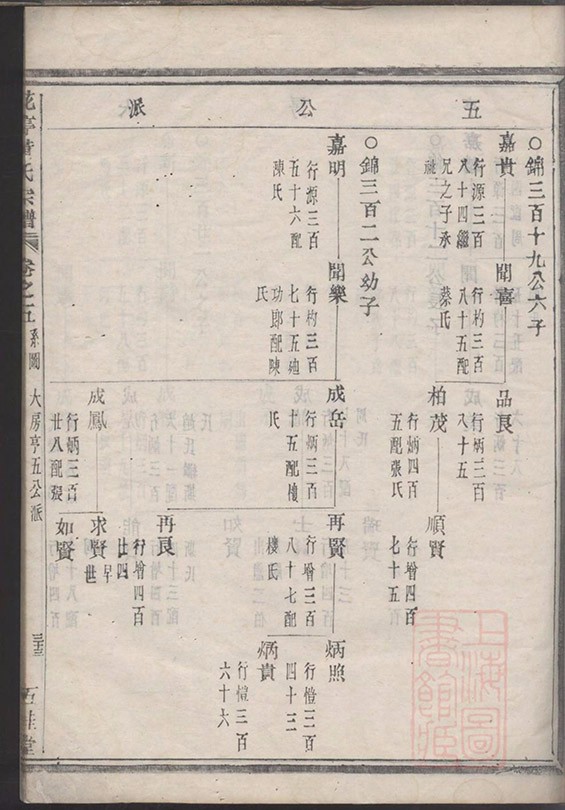 五公派
○錦三百十九公六子
嘉貴
行源三百
八十四繼
兄之子承
祧
聞喜
行杓三百
八十五配
蔡氏
品良
行炳三百
八十五
柏茂
行炳四百
五配張氏
順賢
行增四百
七十五
○錦三百二公幼子
嘉明
行源三百
五十六配
陳氏
聞樂
行杓三百
七十五廸
功郎配陳
氏
成岳
行炳三百
十五配樓
氏
再賢
行增三百
八十七配
樓氏
炳照
行僜三百
四十三
炳貴
行僜三百
六十六
再良
行增四百
廿四
成鳳
行炳三百
廿八配張
求賢
早
世
如賢
亭
氏宗譜
卷之五
系圖
大房亨五公派
三十三
上海圖
書館藏